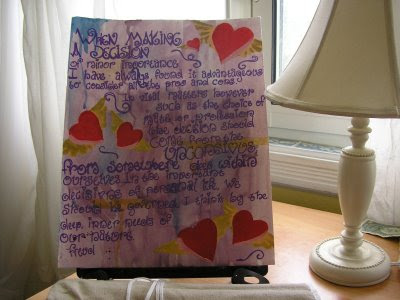 When Making
A Decision
of minor importance
I have always found it advantageous
to consider all the pros and cons.
In vital matters however
such as the choice of
mate or profession
the decision should
come from the
unconscious
from somewhere within
ourselves In the important
decisions of personal life, we
should be governed I think by the
deep inner needs of
our nature.
Freud